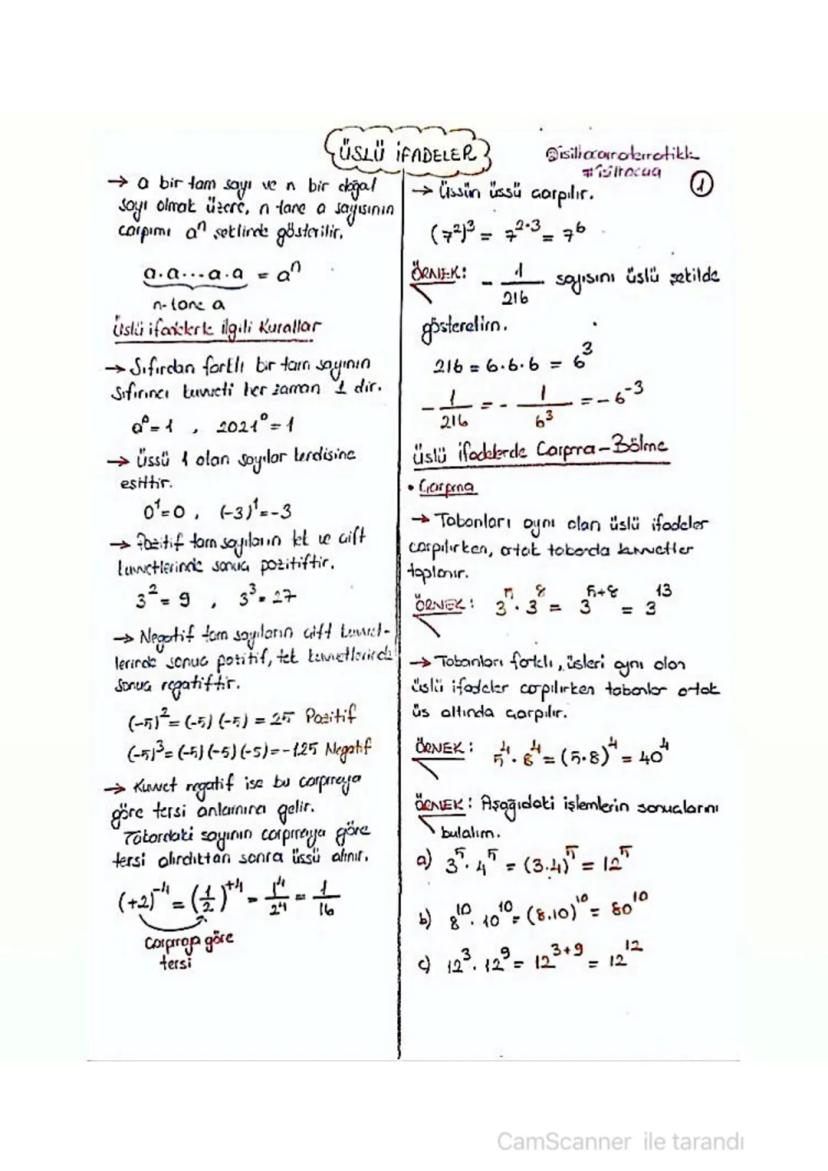 ÜSLÜ İFADELER
1
→ a bir tam sayı ve n bir doğal
sayı olmak üzere, n tane a sayısının
çarpımı aⁿ şeklinde gösterilir.
a.a...a.a = aⁿ
n-tane a
Üslü ifadelerle ilgili Kurallar
→ Sıfırdan farklı bir tam sayının
sıfırıncı kuvveti her zaman 1 dir.
a⁰=1 , 2021⁰=1
→ Üssü 1 olan sayılar kendisine
eşittir.
0¹=0 , (-3)¹=-3
→ Pozitif tam sayıların tek ve çift
kuvvetlerinde sonuç pozitiftir.
3² = 9 , 3³ = 27
→ Negatif tam sayıların çift kuvvet-
lerinde sonuç pozitif, tek kuvvetlerinde
sonuç negatiftir.
(-5)² = (-5) (-5) = 25 Pozitif
(-5)³ = (-5) (-5) (-5) = -125 Negatif
→ Kuvvet negatif ise bu çarpmaya
göre tersi anlamına gelir.
Tabandaki sayının çarpmaya göre
tersi alındıktan sonra üssü alınır.
(+2)⁻⁴ = (1/2)⁺⁴ = 1⁴/2⁴ = 1/16
Çarpmaya göre
tersi
→ Üssün üssü çarpılır.
(7²)³ = 7²·³ = 7⁶
ÖRNEK: - 1/216 sayısını üslü şekilde
gösterelim.
216 = 6.6.6 = 6³
- 1/216 = - 1/6³ = - 6⁻³
Üslü ifadelerde Çarpma - Bölme
• Çarpma
→ Tabanları aynı olan üslü ifadeler
çarpılırken, ortak tabanda kuvvetler
toplanır.
ÖRNEK: 3⁵ . 3⁸ = 3⁵⁺⁸ = 3¹³
→ Tabanları farklı, üsleri aynı olan
üslü ifadeler çarpılırken tabanlar ortak
üs altında çarpılır.
ÖRNEK: 5⁴ . 8⁴ = (5.8)⁴ = 40⁴
ÖRNEK: Aşağıdaki işlemlerin sonuçlarını
bulalım.
a) 3⁵ . 4⁵ = (3.4)⁵ = 12⁵
b) 8¹⁰ . 10¹⁰ = (8.10)¹⁰ = 80¹⁰
c) 12³ . 12⁹ = 12³⁺⁹ = 12¹²
CamScanner ile tarandı